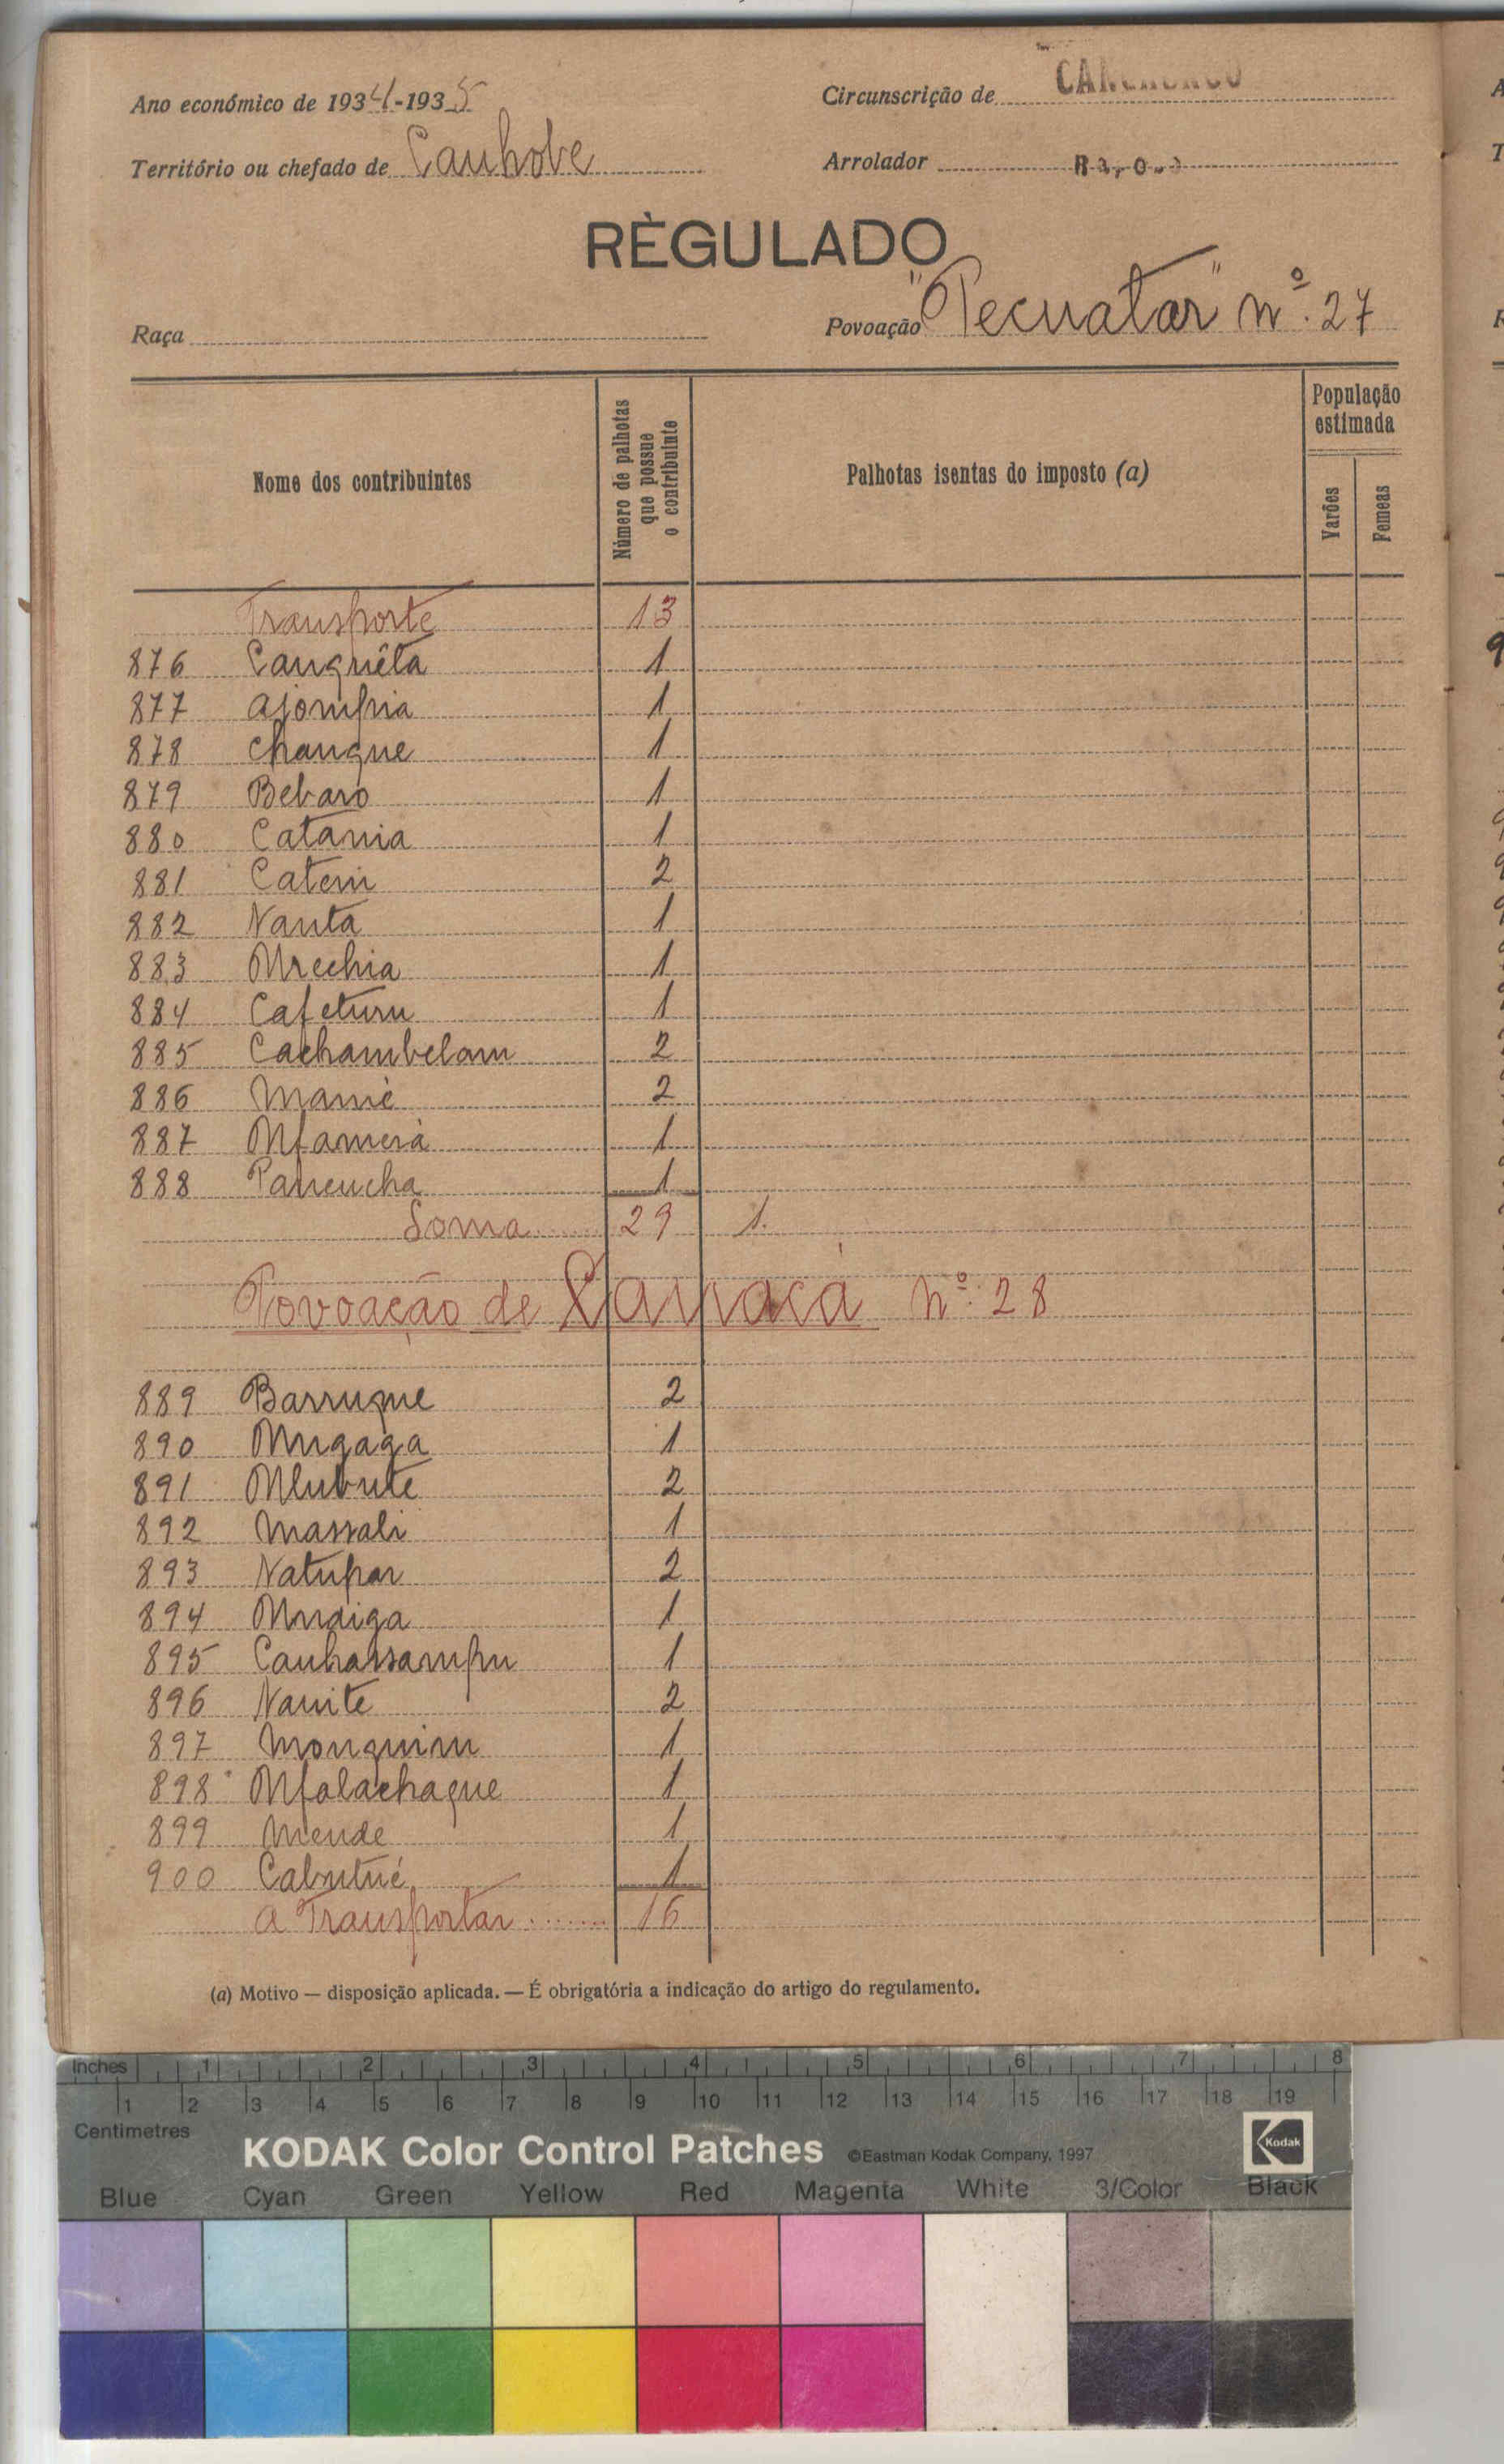 Ano económico de 1934-1935
Circunscrição de CANCHUNGO
Território ou chefado de Canhobe
Arrolador
RÈGULADO
Raça
Povoação "Pecuatar" nº. 27
Nome dos contribuintes
Número de palhotas que possue o contribuinte
Palhotas isentas do imposto (a)
População estimada
Varões
Femeas
Transporte 13
876 Canguêta 1
877 Ajompia 1
878 Changue 1
879 Bebaro 1
880 Catania 1
881 Cateni 2
882 Nanta 1
883 Mrechia 1
884 Cafeturu 1
885 Cachambelam 2
886 Maniè 2
887 Mfamerà 1
888 Paneucha 1
Soma 29 1.
Povoação de nº. 28
889 Barruque 2
890 Mugaga 1
891 Mlubute 2
892 Massali 1
893 Natupar 2
894 Mudiga 1
895 Canhassampu 1
896 Nanite 2
897 Monquim 1
898 Mfalachaque 1
899 Mende 1
900 Cabutué 1
A Transportar 16
(a) Motivo — disposição aplicada. — É obrigatória a indicação do artigo do regulamento.
Inches 1 2 3 4 5 6 7 8
1 2 3 4 5 6 7 8 9 10 11 12 13 14 15 16 17 18 19
Centimetres
KODAK Color Control Patches ©Eastman Kodak Company, 1997 Kodak
Blue Cyan Green Yellow Red Magenta White 3/Color Black